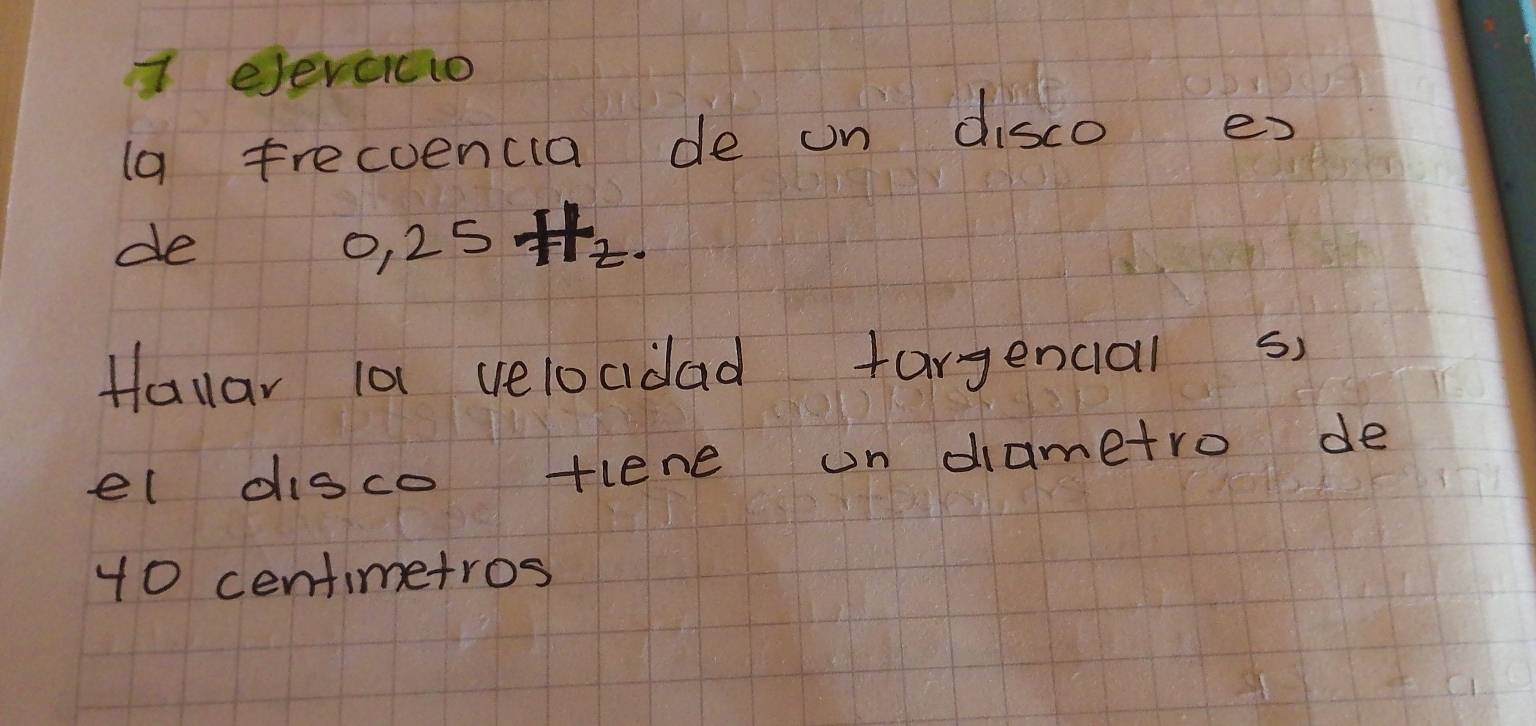 1 ejercicio
la frecuencia de un disco es
de 0,25 Hz.
Hallar la velocidad targencial si
el disco tiene un diametro de
40 centimetros